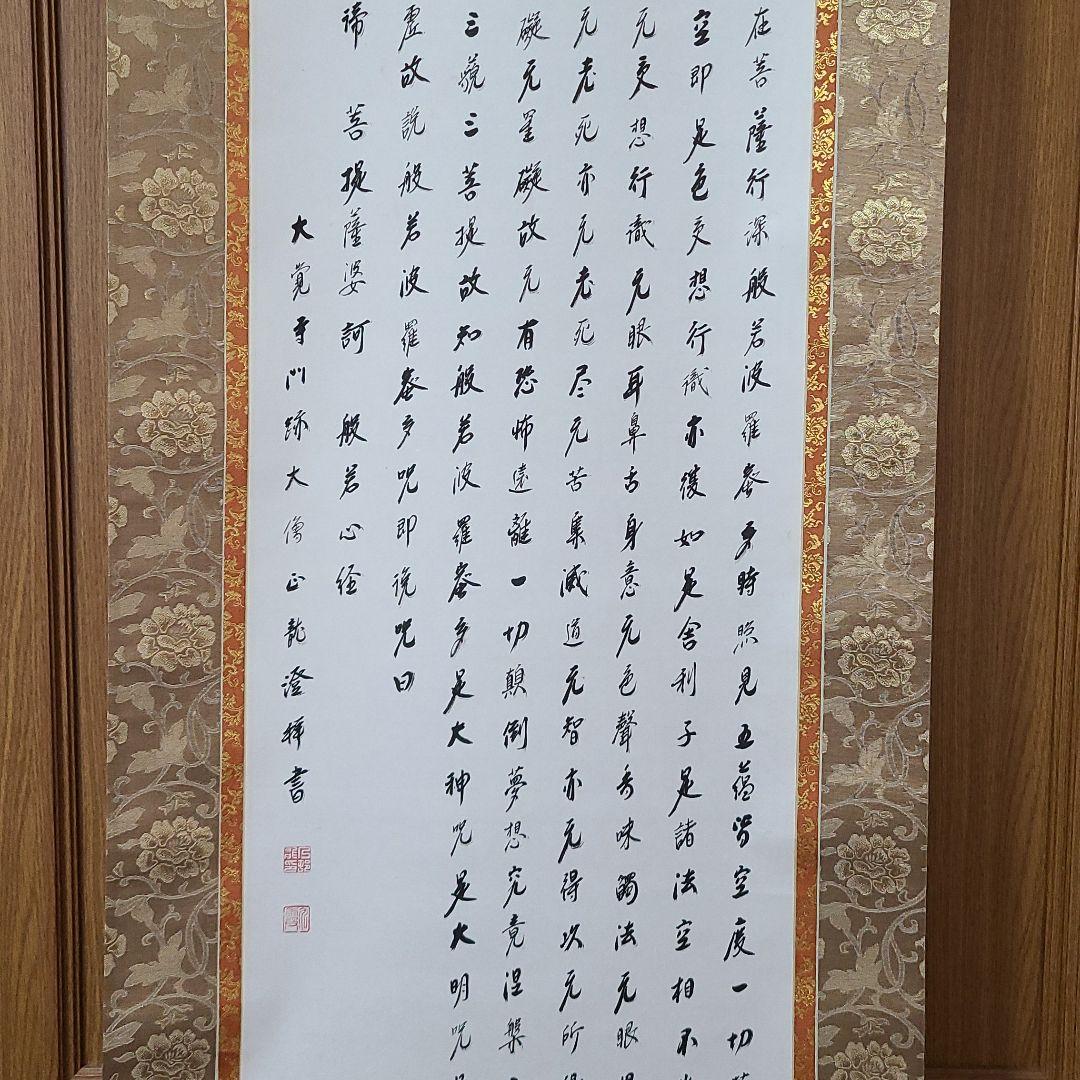 在菩薩行深般若波羅蜜多時照見五蘊皆空度一切
空即是色受想行識亦復如是舎利子是諸法空相不
无受想行識无眼耳鼻舌身意无色聲香味觸法无眼
无老死亦无老死尽无苦集滅道无智亦无得以无所
礙无罣礙故无有恐怖遠離一切顛倒夢想究竟涅槃
三藐三菩提故知般若波羅蜜多是大神呪是大明呪
虚故説般若波羅蜜多呪即説呪曰
諦 菩提薩婆訶 般若心経
大覚寺門跡大僧正龍澄拝書